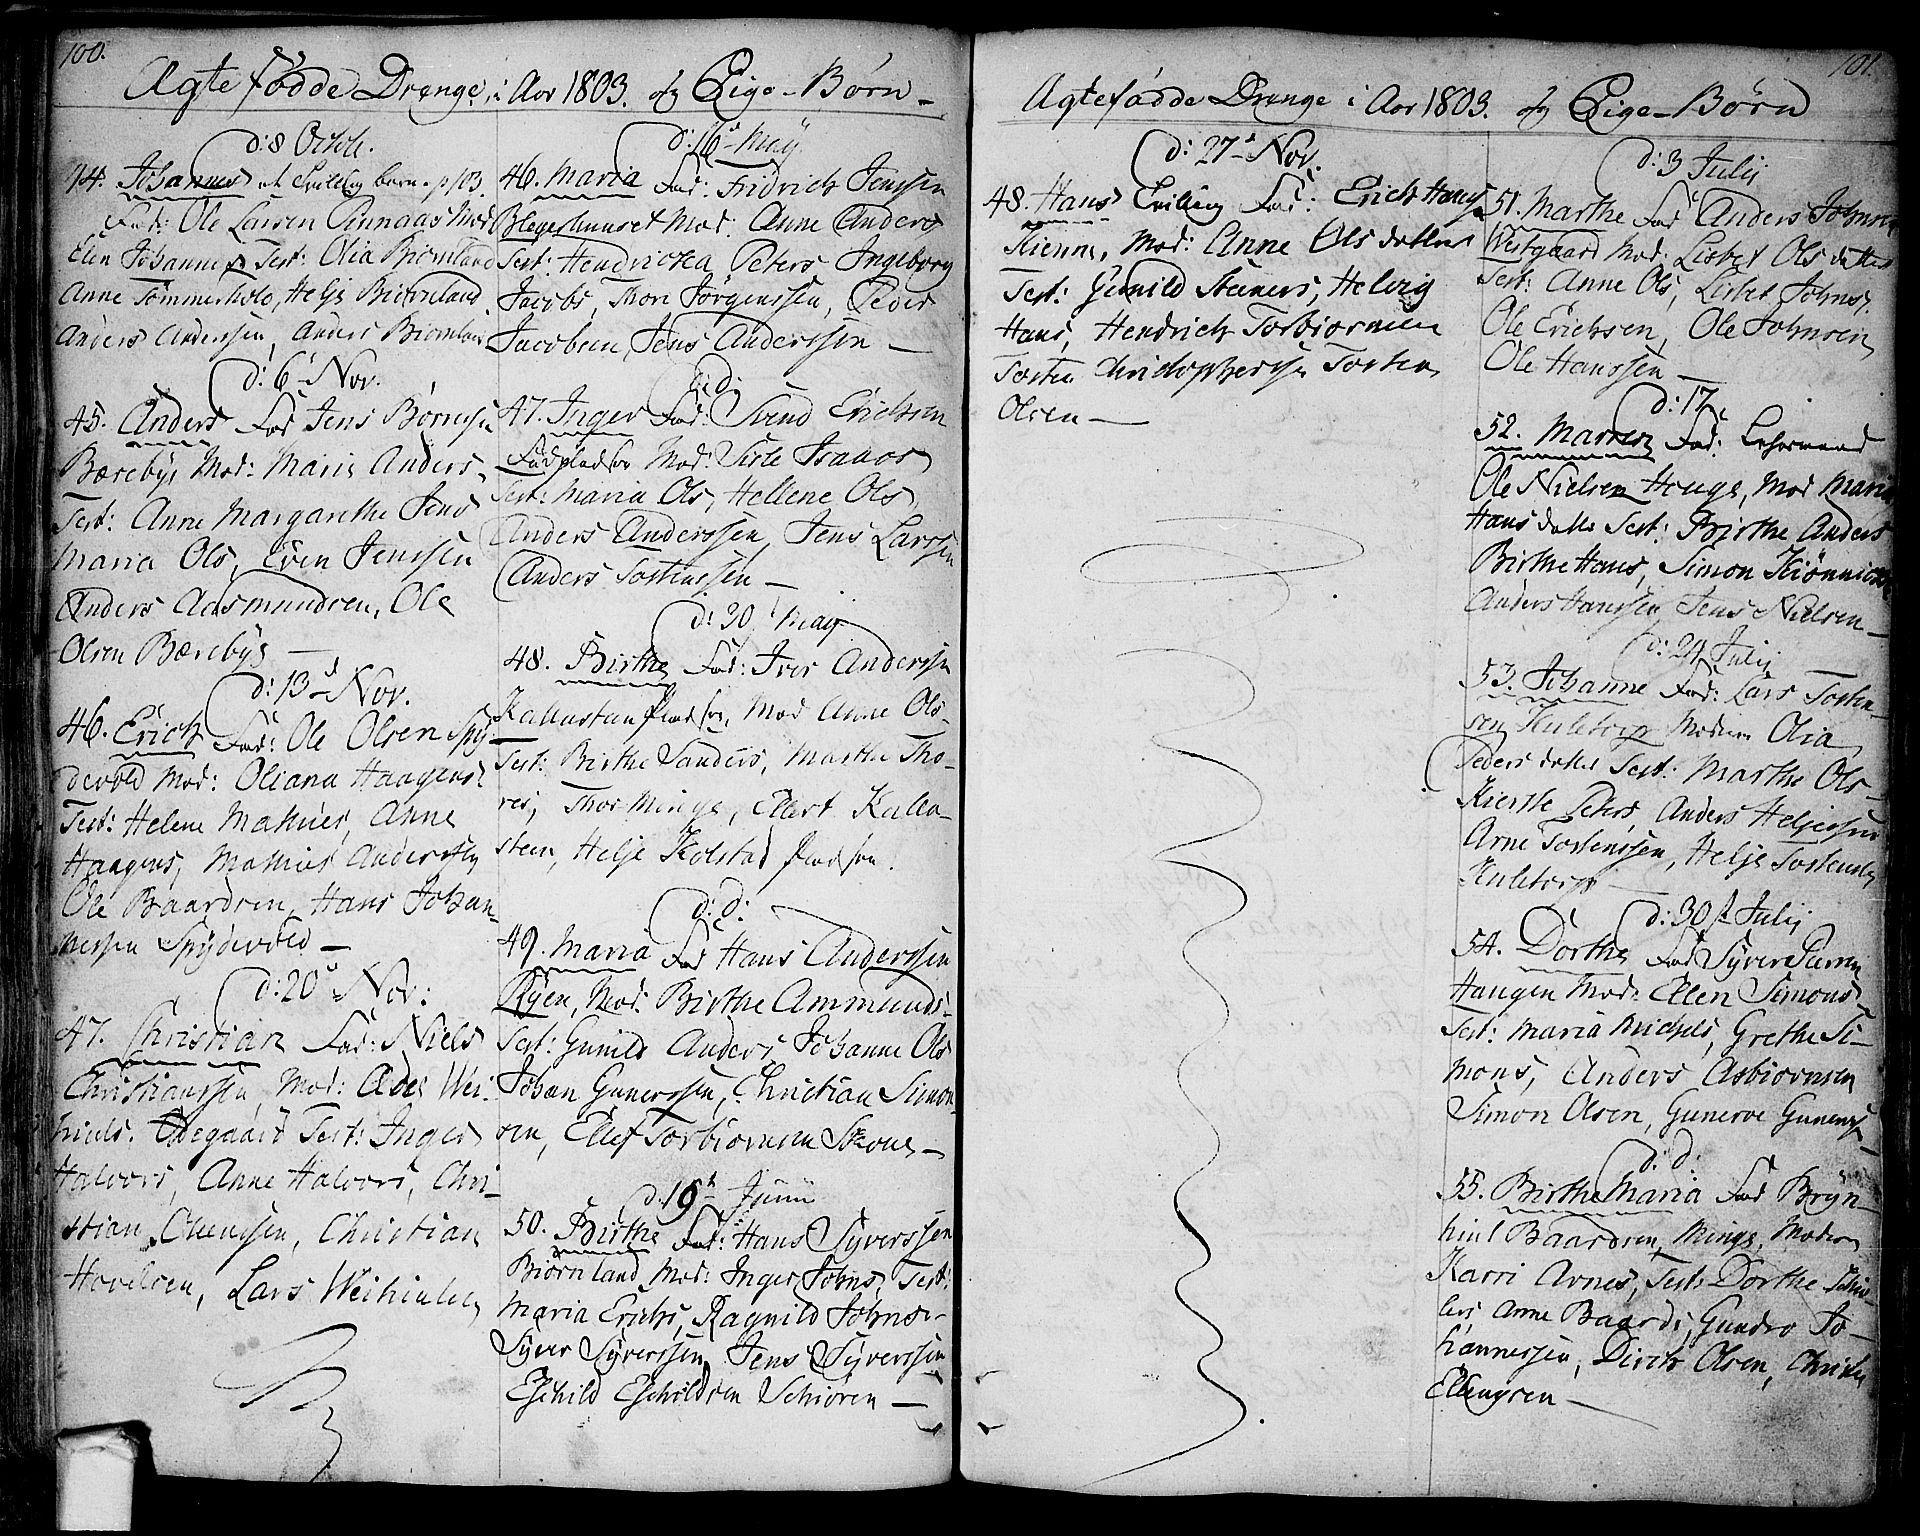 100.
Ægte fødde Drenge i Aar 1803. og Pige-Børn
d: 8 Octob.
44. Johannes et Tvilling barn. p. 103.
Fad: Ole Larsen Mod
Elen Johannes Test: Olia Biørnland
Anne Tømmerholt, Helje Biørnland
Anders Andersen, Anders Biørnland
d: 6t Nov.
45. Anders Fad Jens Børresen
Bærebye Mod: Marie Anders
Test: Anne Margarethe Jens
Maria Ols, Even Jenssen
Anders Aasmundsen, Ole
Olsen Bærebye
d: 13d Nov.
46. Erich Fad: Ole Olsen Spy-
devold Mod: Oliana Haagens
Test: Helene Mathies, Anne
Haagens, Mathias Anderssen
Ole Baardsen, Hans Johan-
nessen Spydevold
d: 20d Nov:
47. Christian Fad: Niels
Christianssen, Mod:
Ødegaard Test: Inger
Halvors, Anne Halvors, Chri-
stian Christian
Hovelsen, Lars
d: 16d May
46. Maria Fad: Fridrich Jenssen
Blegeshuuset Mod: Anne Anders
Test: Hendricka Peters Ingeborg
Jacobs, Thore Jørgenssen, Peder
Jacobsen, Jens Anderssen
d: d:
47. Inger Fad: Svend Ericksen
Mod: Sirle Isaacs
Test: Maria Ols, Hellene Ols
Anders Anderssen, Jens Larssen
Anders Tostenssen
d: 30 May
48. Birthe Fad: Iver Anderssen
Kallasteen Pladsen, Mod Anne Ols-
Test: Birthe Sanders, Marthe Tho-
res, Thor Minge, Ellert Kalla-
steen, Helje Kolstad Pladsen.
d: d:
49. Maria Fad Hans Anderssen
Ryen, Mod: Birthe Ammunds-
Test: Gunild Anders, Johanne Ols
Johan Gunerssen, Christian Simon-
sen, Ellef Torbiørnsen Skoue
d. 19h Junii
50. Birthe Fad: Hans Syverssen
Biørnland, Mod: Inger Johns, Test:
Maria Erichs, Ragnild Johns-
Syver Syverssen, Jens Syverssen
Eschild Eschildsen Schiøren
101.
Ægtefødde Drenge i Aar 1803. og Pige-Børn
d: 27d Nov.
48. Hans Tvilling Fad: Erich Hans
Kienne, Mod: Anne Olsdatter
Test: Gunild Steeners, Helvig
Hans, Hendrich Torbiørnsen
Tosten Christophersen Tosten
Olsen
d: 3 Julij
51. Marthe Fad Anders Johnsen
Vestgaard Mod: Lisbet Olsdatter
Test: Anne Ols, Lisbet Johns,
Ole Erichsen, Ole Johnsen
Ole Hanssen
d: 17
52. Marren Fad:
Ole Nielsen Hauge, Mod Maria
Hansdatter Test: Birthe Anders
Birthe Hans, Simon
Anders Hanssen, Jens Nielsen
d: 24 Julij
53. Johanne Fad: Lars Tosten-
sen Kuletorp Moderen Olia
Pedersdatter Test: Marthe Ols-
Kierste Peters, Anders Heljessen
Arne Tostenssen, Helje Tostensen
Kuletorp
d: 30t Julij
54. Dorthe Fad Syver
Haugen Mod: Ellen Simons
Test: Maria Michels, Grethe Si-
mons, Anders Asbiørnsen
Simon Olsen, Gunerve Gunerssen
d: d:
55. Birthe Maria Fad Bryn-
hiul Baardsen, Minge, Moder
Karri Arnes, Test: Dorthe
Anne Baards, Gunder Jo-
hannessen, Dirch Olsen,
Ellengsen